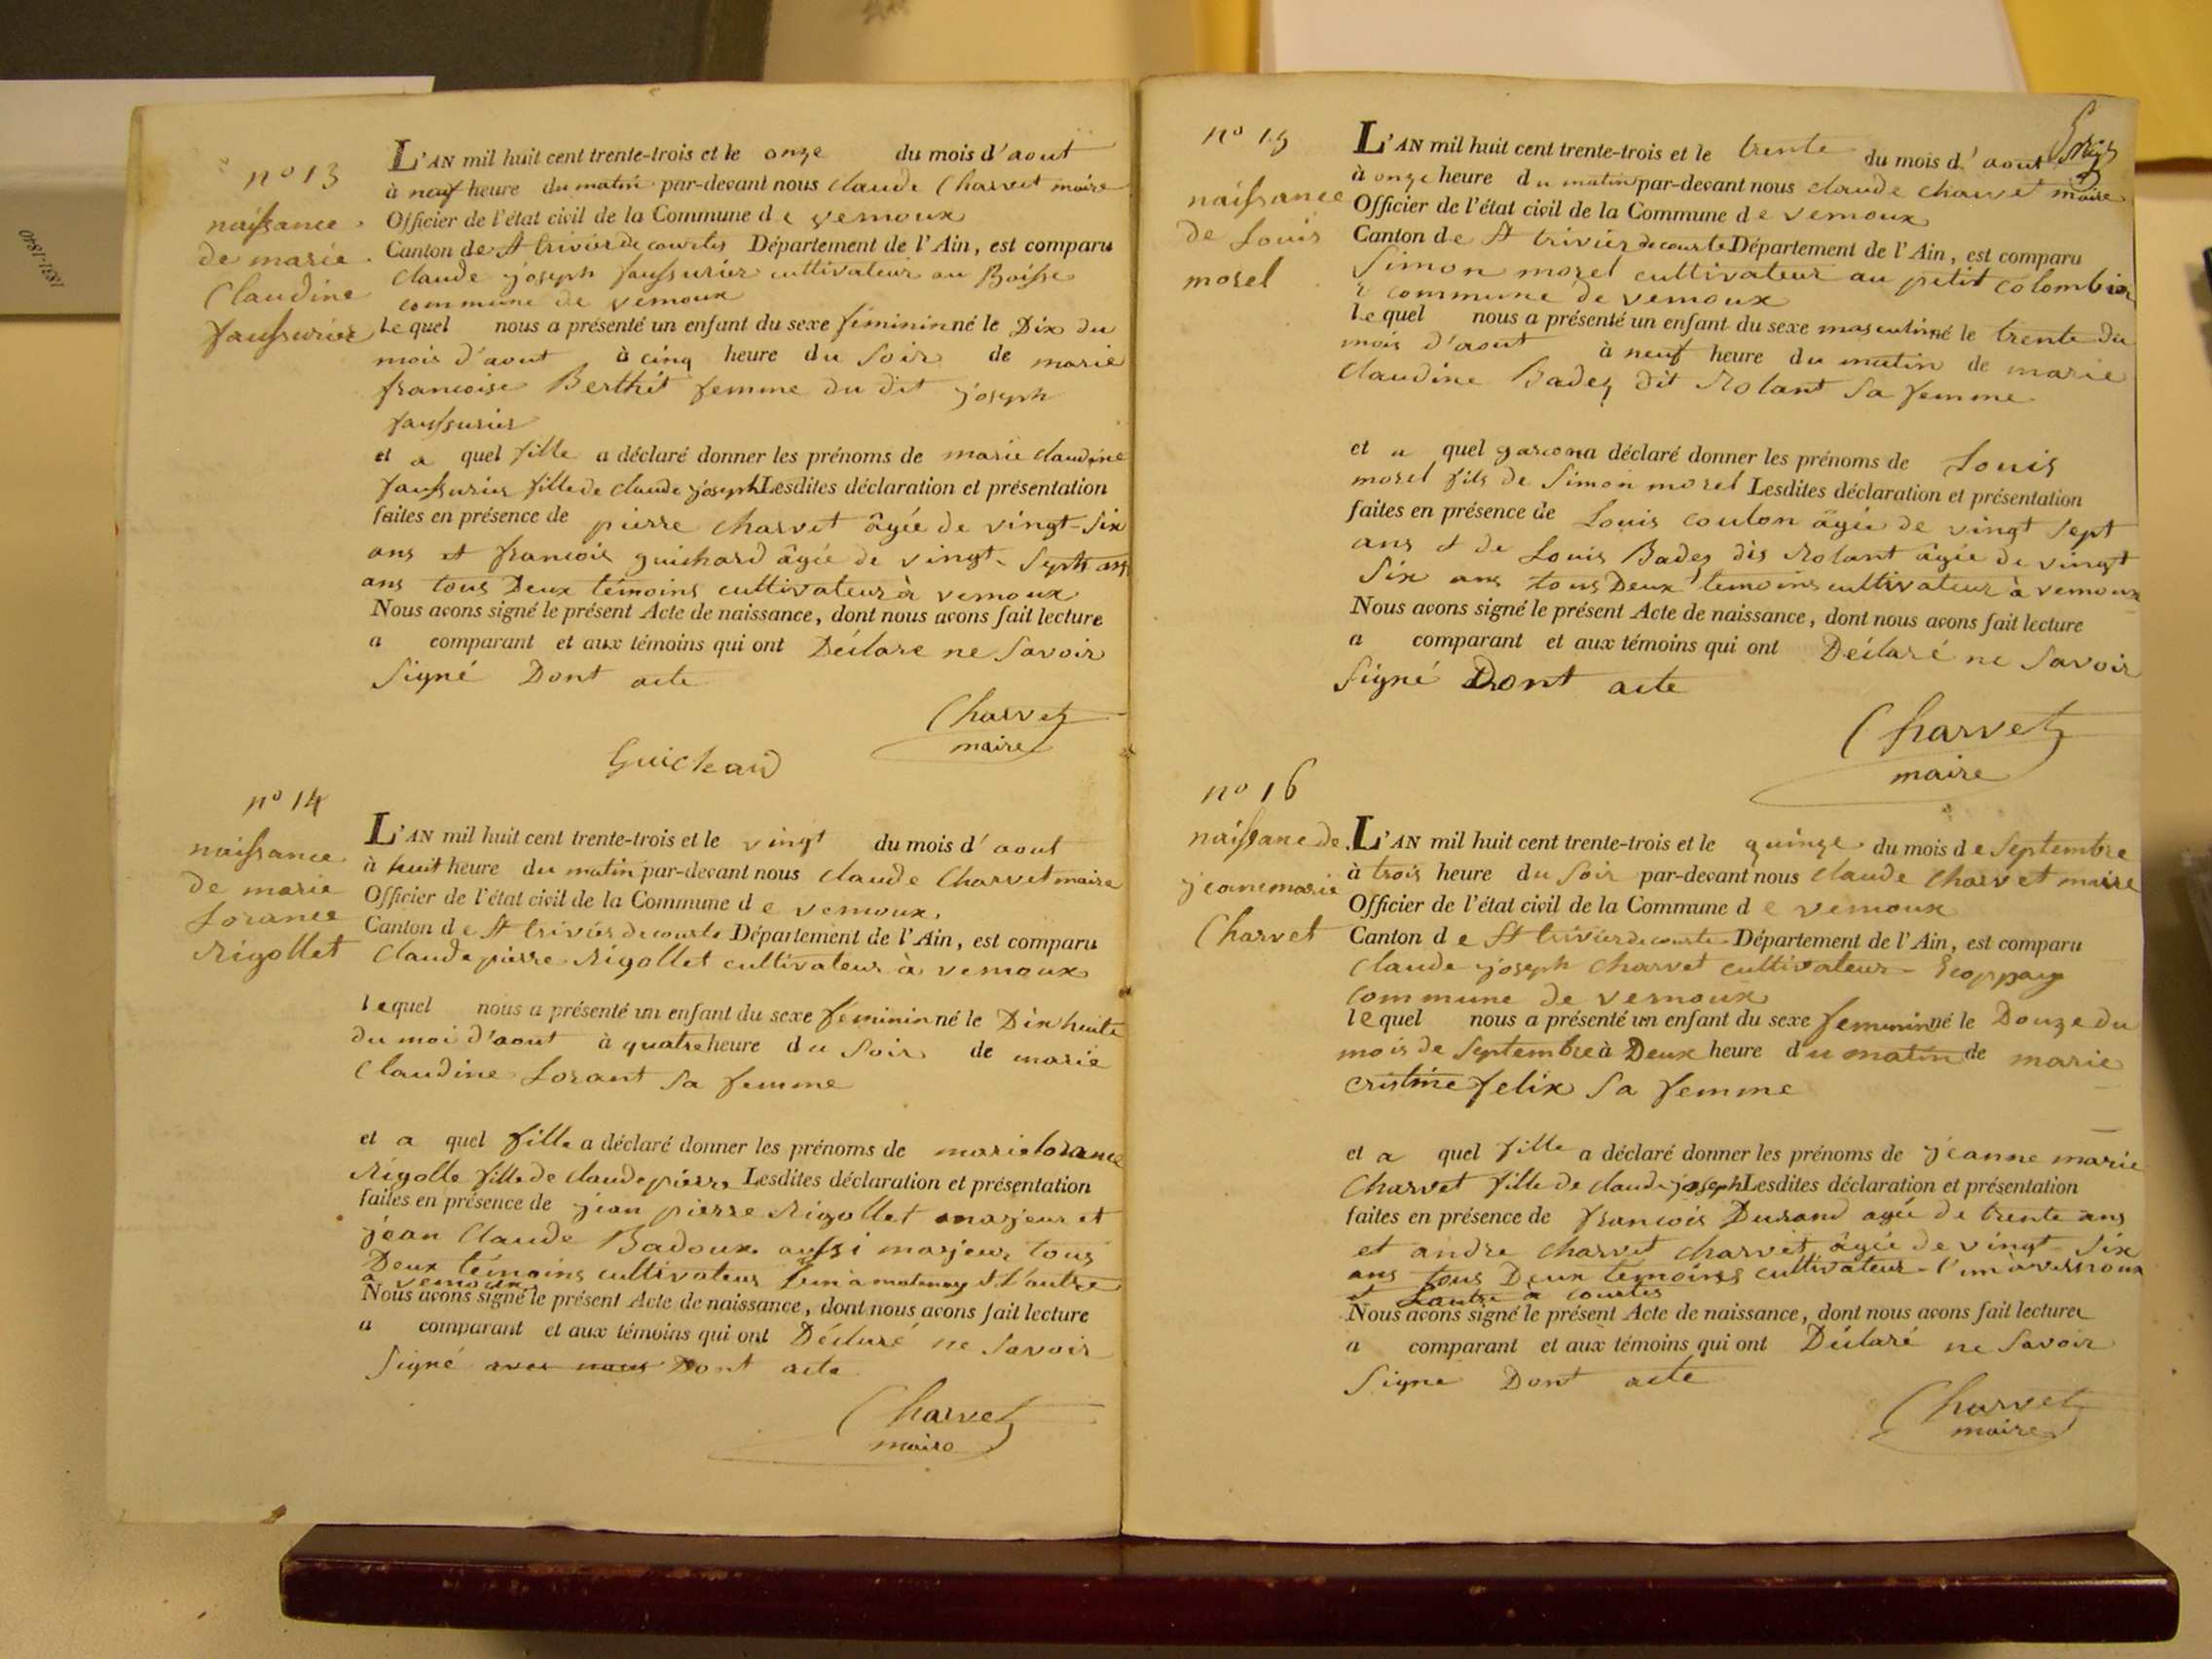 n° 13
naissance
de marie
Claudine
faussurier
L'AN mil huit cent trente-trois et le onze du mois d'aout
à neuf heure du matin par-devant nous claude Charvet maire
Officier de l'état civil de la Commune de vernoux
Canton de St trivier de courtes Département de l'Ain, est comparu
claude joseph faussurier cultivateur au Boisse
commune de vernoux
lequel nous a présenté un enfant du sexe féminin né le Dix du
mois d'aout à cinq heure du Soir de marie
francoise Berthet femme du dit joseph
faussurier
et a quel fille a déclaré donner les prénoms de marie claudine
faussurier fille de claude joseph Lesdites déclaration et présentation
faites en présence de pierre charvet âgée de vingt-Six
ans et francois guichard âgée de vingt-Septs ans
ans tous Deux témoins cultivateur à vernoux
Nous avons signé le présent Acte de naissance, dont nous avons fait lecture
a comparant et aux témoins qui ont Déclare ne Savoir
Signé Dont acte
Charvet
maire
Guichard
n° 14
naissance
de marie
Lorance
Rigollet
L'AN mil huit cent trente-trois et le vingt du mois d'aout
à huit heure du matin par-devant nous claude Charvet maire
Officier de l'état civil de la Commune de vernoux
Canton de St trivier de courte Département de l'Ain, est comparu
Claude pierre Rigollet cultivateur à vernoux
lequel nous a présenté un enfant du sexe féminin né le Dix huite
du moi d'aout à quatre heure du Soir de marie
Claudine Lorant Sa femme
et a quel fille a déclaré donner les prénoms de marie lorance
Rigolle fille de claude pierre Lesdites déclaration et présentation
faites en présence de jean pierre Rigollet marjeur et
jean Claude Badoux aussi marjeur tous
Deux témoins cultivateur l'un a mantenay et l'autre
a vernoux
Nous avons signé le présent Acte de naissance, dont nous avons fait lecture
a comparant et aux témoins qui ont Déclaré ne Savoir
Signé avec nous Dont acte
Charvet
maire
n° 15
naissance
de Louis
morel
L'AN mil huit cent trente-trois et le trente du mois d'aout
à onze heure du matin par-devant nous claude charvet maire
Officier de l'état civil de la Commune de vernoux
Canton de St trivier de courte Département de l'Ain, est comparu
Simon morel cultivateur au petit colombier
commune de vernoux
lequel nous a présenté un enfant du sexe masculin né le trente du
mois d'aout à neuf heure du matin de marie
claudine Badez dit Rolant Sa femme
et a quel garcon a déclaré donner les prénoms de Louis
morel fils de Simon morel Lesdites déclaration et présentation
faites en présence de Louis coulon âgée de vingt Sept
ans et de Louis Badez dis Rolant âgée de vingt
Six ans tous Deux temoins cultivateur à vernoux
Nous avons signé le présent Acte de naissance, dont nous avons fait lecture
a comparant et aux témoins qui ont Déclaré ne Savoir
Signé Dont acte
Charvet
maire
n° 16
naissane de
jeanne marie
Charvet
L'AN mil huit cent trente-trois et le quinze du mois de Septembre
à trois heure du Soir par-devant nous claude Charvet maire
Officier de l'état civil de la Commune de vernoux
Canton de St trivier de courte Département de l'Ain, est comparu
Claude joseph charvet cultivateur
commune de vernoux
lequel nous a présenté un enfant du sexe feminin né le Douze du
mois de Septembre à Deux heure du matin de marie
cristine felix Sa femme
et a quel fille a déclaré donner les prénoms de jeanne marie
Charvet fille de claude joseph Lesdites déclaration et présentation
faites en présence de francois Durand agée de trente ans
et andre charvet charvet âgée de vingt-Six
ans tous Deux témoins cultivateur l'un à vernoux
et Lautre a courtes
Nous avons signé le présent Acte de naissance, dont nous avons fait lecture
a comparant et aux témoins qui ont Déclaré ne Savoir
Signe Dont acte
Charvet
maire
1831-1840